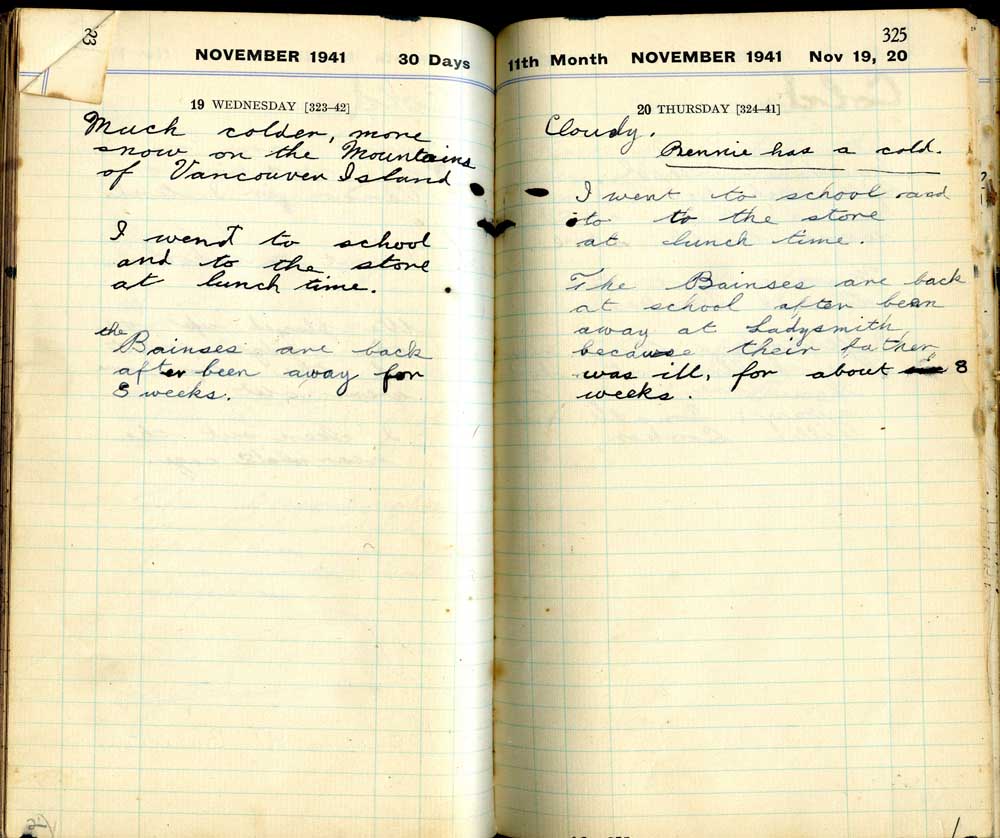 23
NOVEMBER 1941 30 Days
19 WEDNESDAY [323-42]
Much colder, more
snow on the Mountains
of Vancouver Island
I went to school
and to the store
at lunch time.
the
Bainses are back
after been away for
8 weeks.
325
11th Month NOVEMBER 1941 Nov 19, 20
20 THURSDAY [324-41]
Cloudy.
Bennie has a cold.
I went to school and
to to the store
at lunch time.
The Bainses are back
at school after been
away at Ladysmith
because their father
was ill, for about 8
weeks.